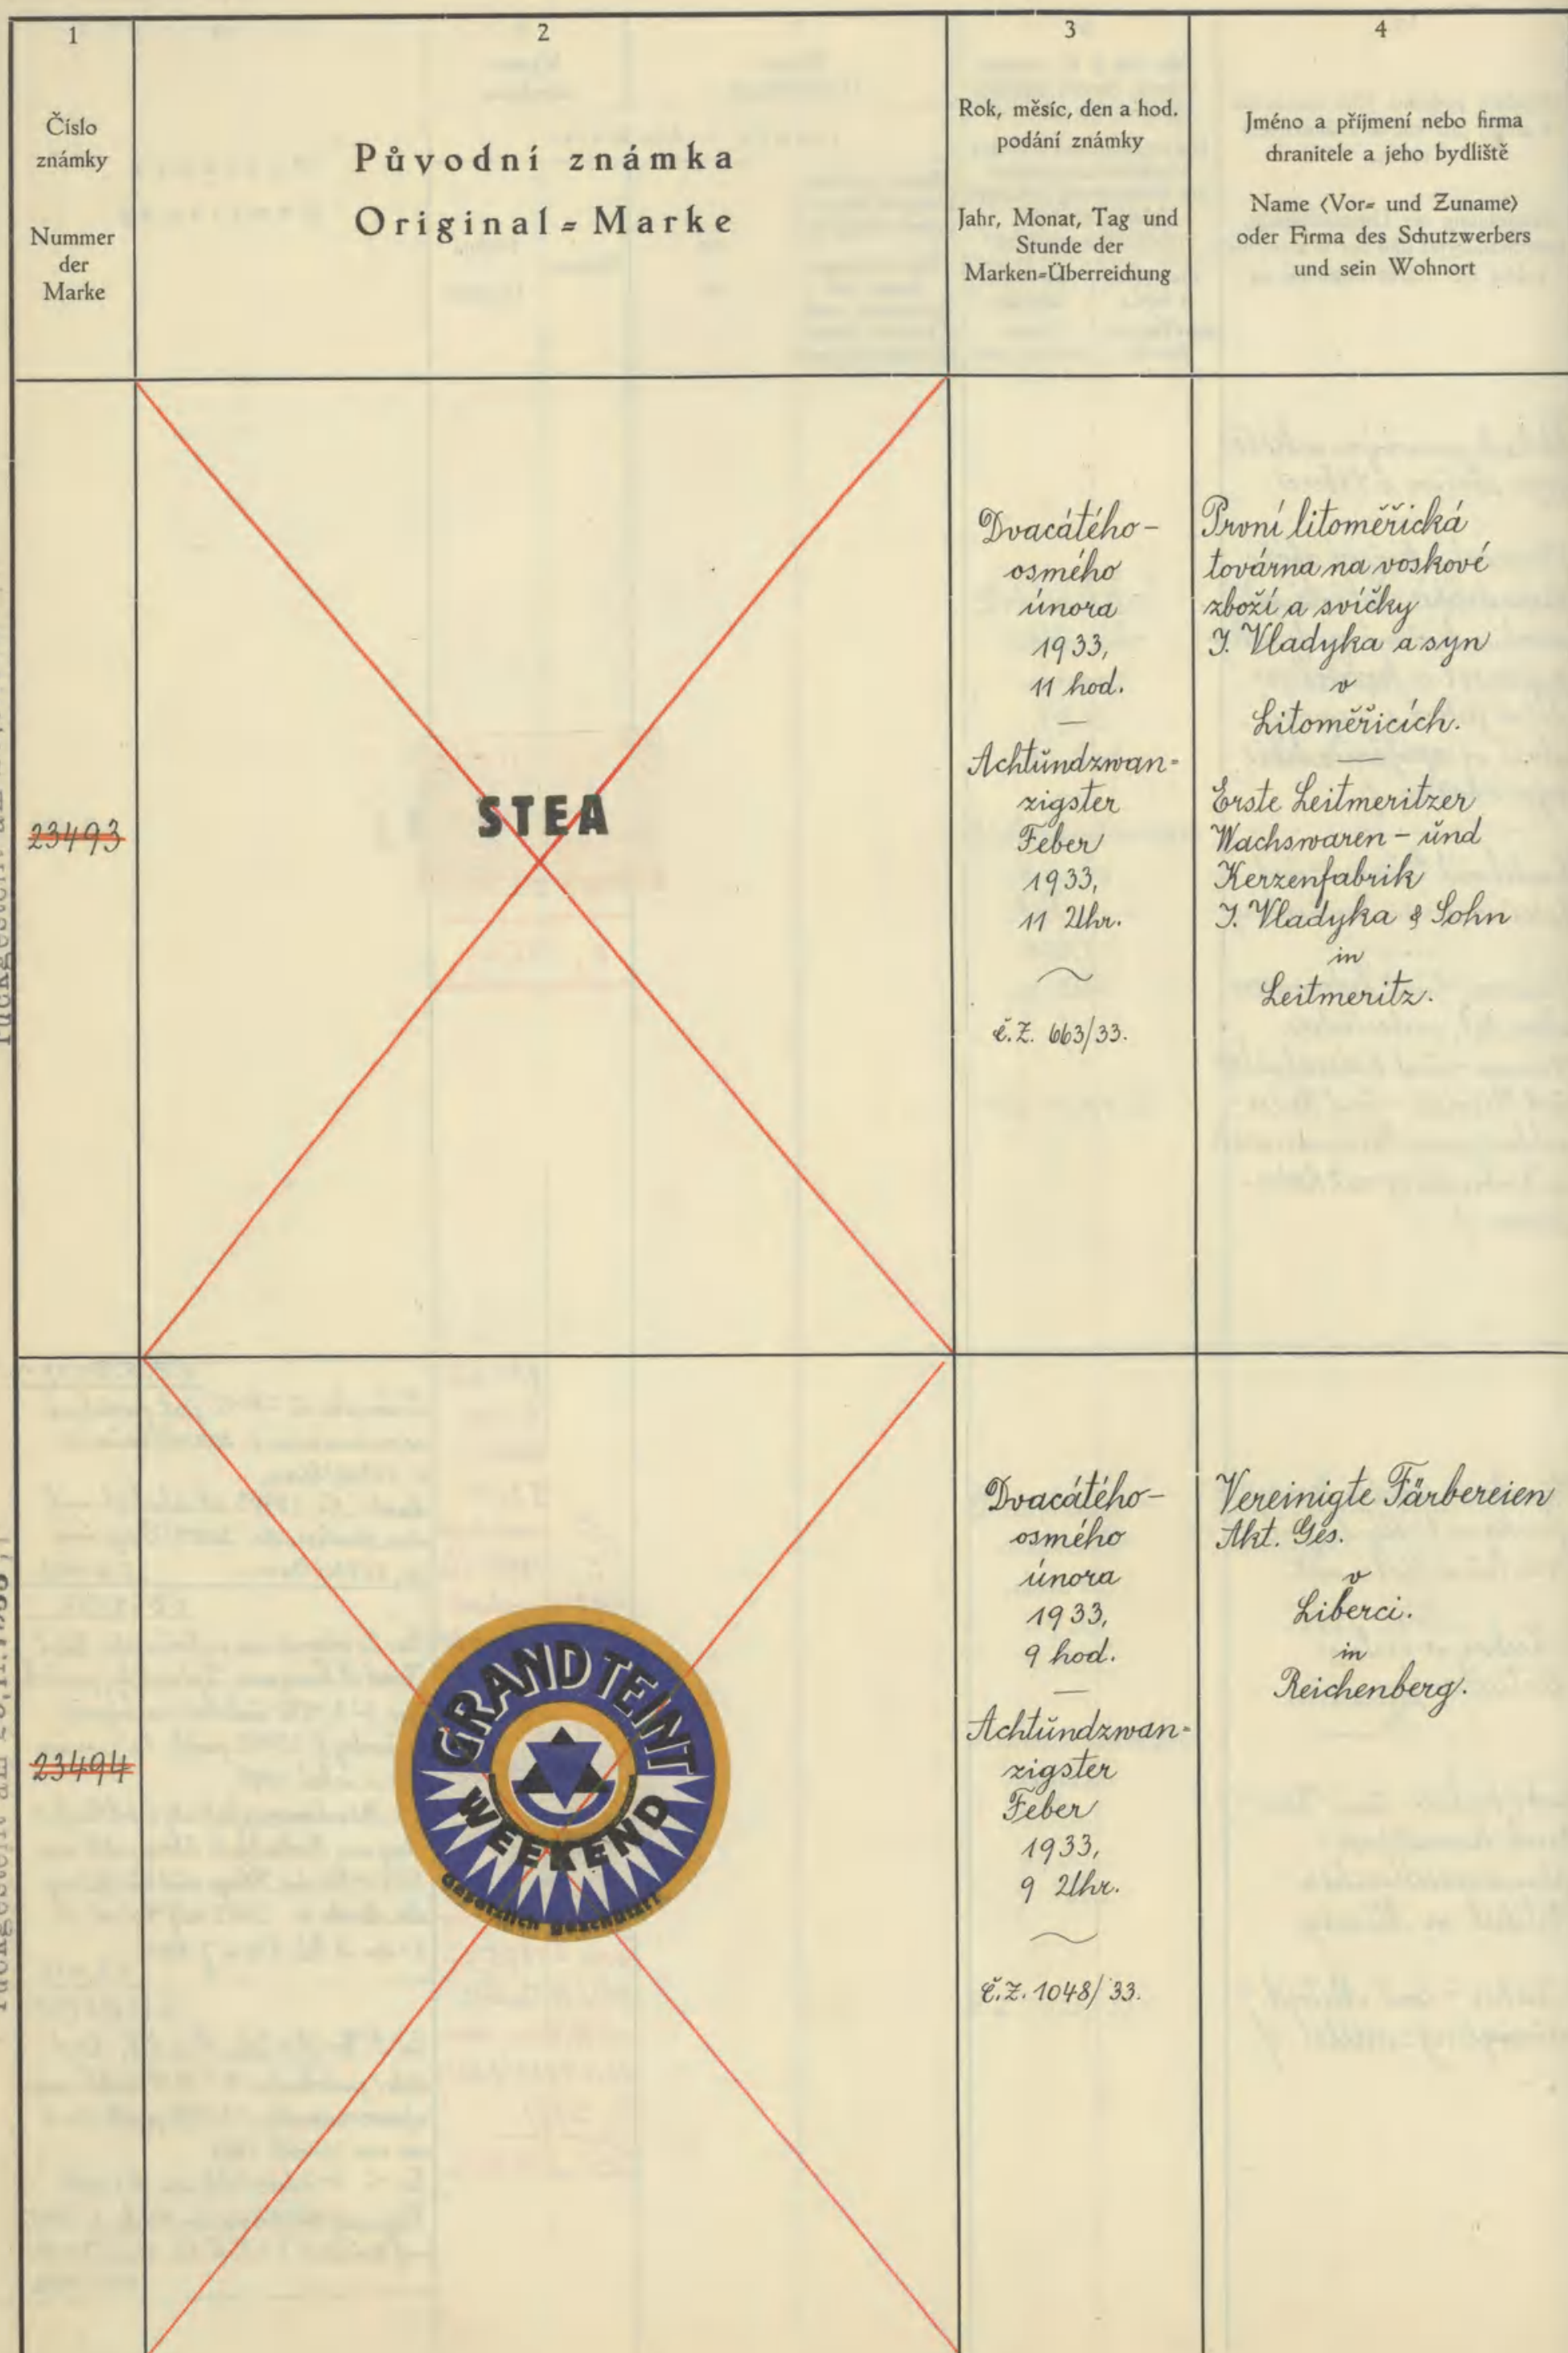 1
2
3
4
Číslo
známky
Nummer
der
Marke
Původní známka
Original=Marke
Rok, měsíc, den a hod.
podání známky
Jahr, Monat, Tag und
Stunde der
Marken=Überreichung
Jméno a příjmení nebo firma
chranitele a jeho bydliště
Name (Vor= und Zuname)
oder Firma des Schutzwerbers
und sein Wohnort
23493
STEA
Dvacátého-
osmého
února
1933,
11 hod.
Achtundzwan-
zigster
Feber
1933,
11 Uhr.
č.Z. 663/33.
První litoměřická
továrna na voskové
zboží a svíčky
J. Vladyka a syn
v
Litoměřicích.
Erste Leitmeritzer
Wachswaren- und
Kerzenfabrik
J. Vladyka & Sohn
in
Leitmeritz.
23494
GRAND TEINT
WEEKEND
Gesetzlich geschützt
Dvacátého-
osmého
února
1933,
9 hod.
Achtundzwan-
zigster
Feber
1933,
9 Uhr.
č.Z. 1048/33.
Vereinigte Färbereien
Akt. Ges.
v
Liberci.
in
Reichenberg.